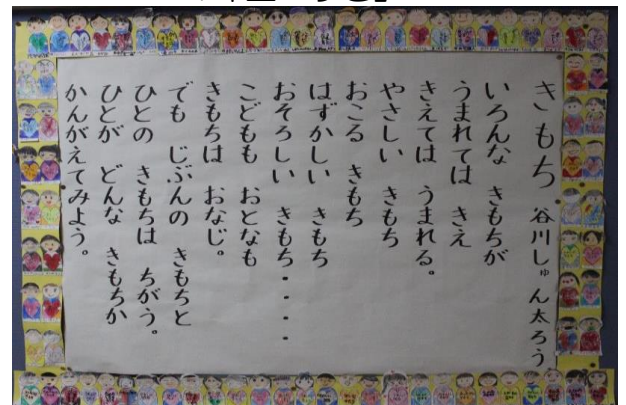 きもち 谷川しゅん太ろう
いろんな きもちが
うまれては きえ
きえては うまれる。
やさしい きもち
おこる きもち
はずかしい きもち
おそろしい きもち・・・・
こどもも おとなも
きもちは おなじ。
でも じぶんの きもちと
ひとの きもちは ちがう。
ひとが どんな きもちか
かんがえてみよう。